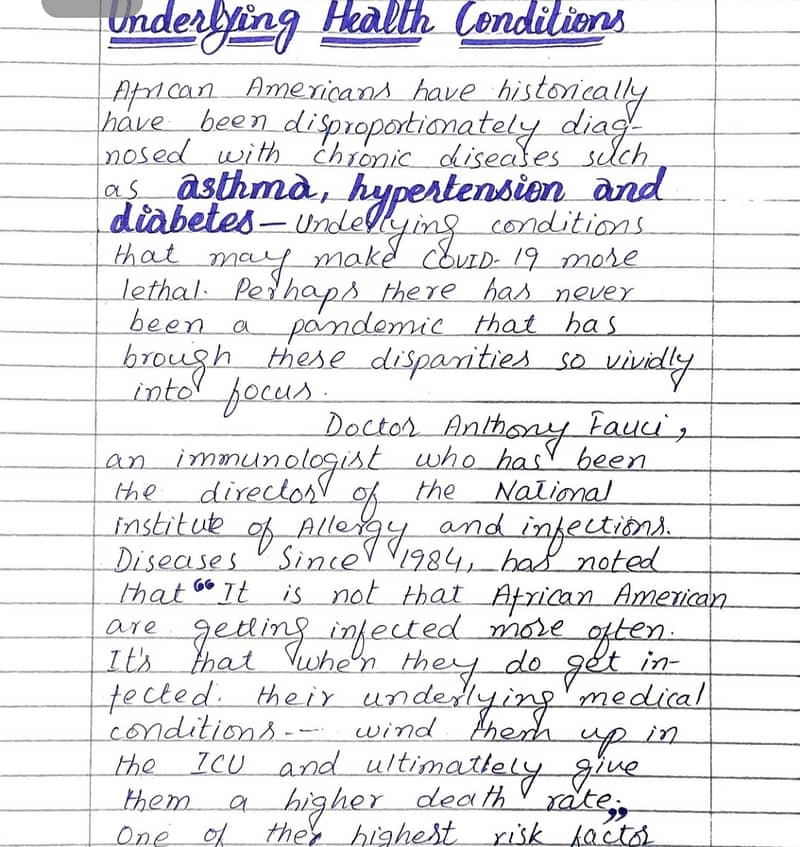 Underlying Health Conditions
African Americans have historically
have been disproportionately diag-
nosed with chronic diseases such
as asthma, hypertension and
diabetes — Underlying conditions
that may make COVID-19 more
lethal. Perhaps there has never
been a pandemic that has
brough these disparities so vividly
into focus.
Doctor Anthony Fauci,
an immunologist who has been
the director of the National
institute of Allergy and infections.
Diseases Since 1984, has noted
that “It is not that African American
are getting infected more often.
It's that when they do get in-
fected. their underlying medical
conditions -- wind them up in
the ICU and ultimatlely give
them a higher death rate."
One of the highest risk factor